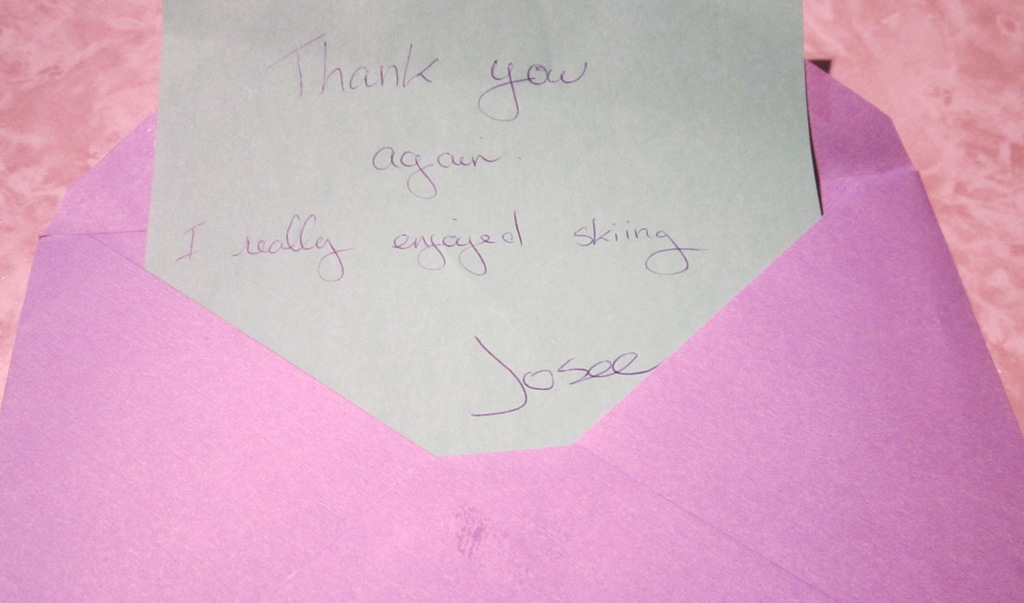 Thank you
again.
I really enjoyed skiing
Josee